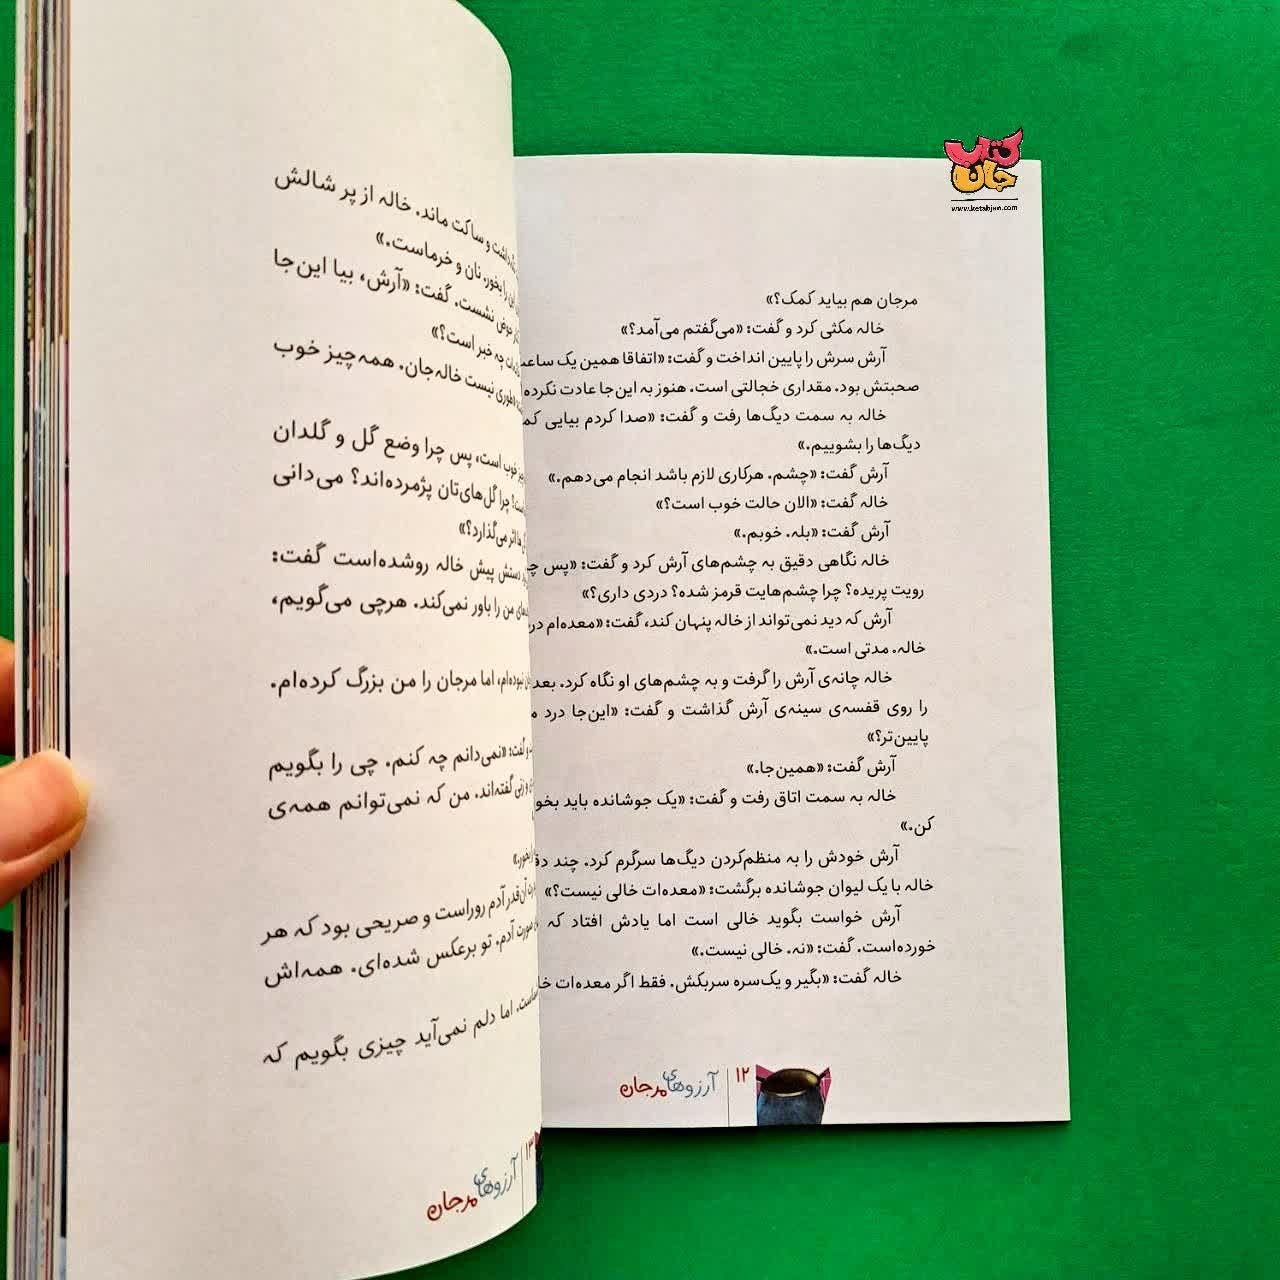 کتاب جان
www.ketabjan.com
مرجان هم بیاید کمک؟»
خاله مکثی کرد و گفت: «می‌گفتم می‌آمد؟»
آرش سرش را پایین انداخت و گفت: «اتفاقا همین یک ساعت
صحبتش بود. مقداری خجالتی است. هنوز به این‌جا عادت نکرده
خاله به سمت دیگ‌ها رفت و گفت: «صدا کردم بیایی
دیگ‌ها را بشوییم.»
آرش گفت: «چشم. هرکاری لازم باشد انجام می‌دهم.»
خاله گفت: «الان حالت خوب است؟»
آرش گفت: «بله. خوبم.»
خاله نگاهی دقیق به چشم‌های آرش کرد و گفت: «پس
رویت پریده؟ چرا چشم‌هایت قرمز شده؟ دردی داری؟»
آرش که دید نمی‌تواند از خاله پنهان کند، گفت: «معده‌ام
خاله. مدتی است.»
خاله چانه‌ی آرش را گرفت و به چشم‌های او نگاه کرد. بعد
را روی قفسه‌ی سینه‌ی آرش گذاشت و گفت: «این‌جا درد
پایین‌تر؟»
آرش گفت: «همین‌جا.»
خاله به سمت اتاق رفت و گفت: «یک جوشانده باید
کن.»
آرش خودش را به منظم‌کردن دیگ‌ها سرگرم کرد. چند
خاله با یک لیوان جوشانده برگشت: «معده‌ات خالی نیست؟»
آرش خواست بگوید خالی است اما یادش افتاد که
خورده‌است. گفت: «نه. خالی نیست.»
خاله گفت: «بگیر و یک‌سره سربکش. فقط اگر معده‌ات
۱۲ آرزوهای مرجان
و ساکت ماند. خاله از پر شالش
را بخور. نان و خرماست.»
حوض نشست. گفت: «آرش، بیا این‌جا
چه خبر است؟»
نیست خاله‌جان. همه‌چیز خوب
خوب است، پس چرا وضع گل و گلدان
چرا گل‌های‌تان پژمرده‌اند؟ می‌دانی
اثر می‌گذارد؟»
دستش پیش خاله روشده‌است گفت:
من را باور نمی‌کند. هرچی می‌گویم،
نبوده‌ام، اما مرجان را من بزرگ کرده‌ام.
گفت: «نمی‌دانم چه کنم. چی را بگویم
گفته‌اند. من که نمی‌توانم همه‌ی
آن‌قدر آدم روراست و صریحی بود که هر
صورت آدم. تو برعکس شده‌ای. همه‌اش
اما دلم نمی‌آید چیزی بگویم که
۱۳ آرزوهای مرجان